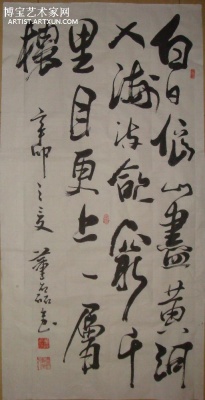 博宝艺术家网
ARTIST.ARTXUN.COM
白日依山尽黄河
入海流欲穷千
里目更上一层
楼
辛卯之夏 董磊书